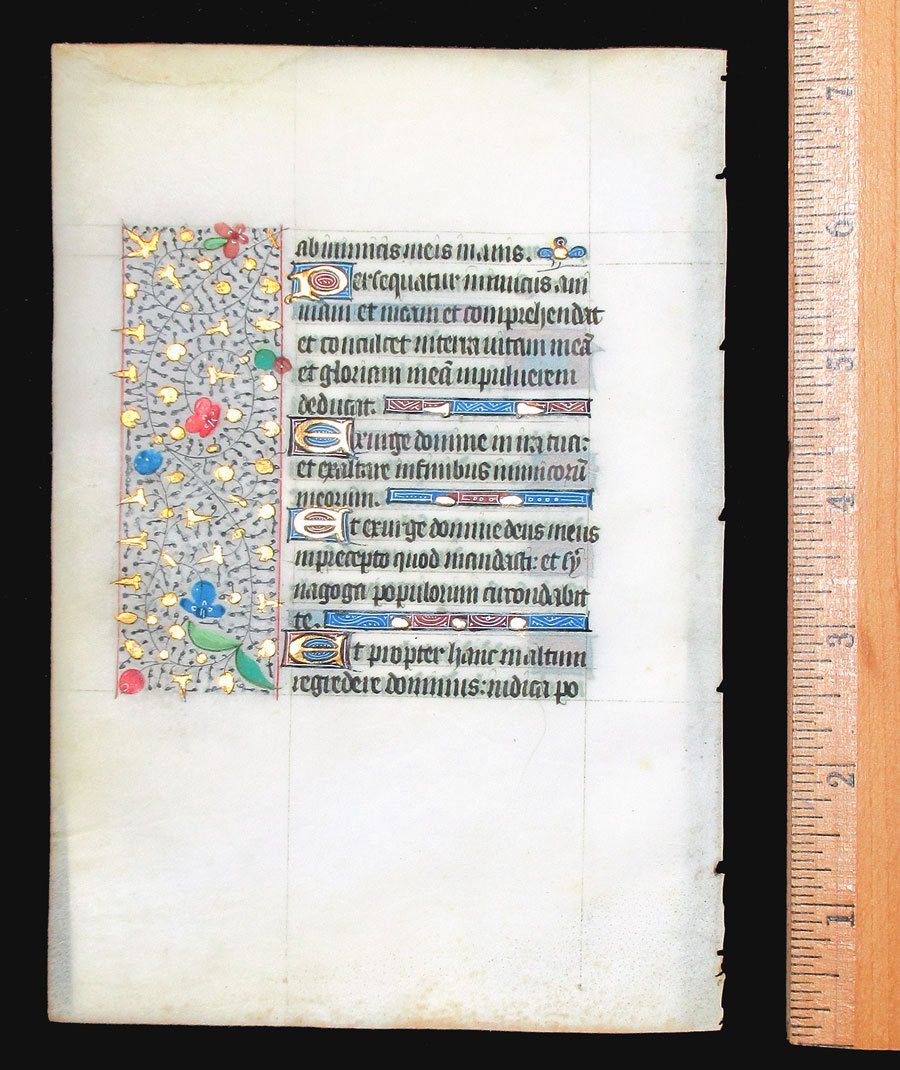 ab inimicis meis inanis.
Persequatur inimicus ani
mam et meam et comprehendat
et conculcet in terra uitam meā
et gloriam meā in puluerem
deducat.
Exurge domine in ira tua:
et exaltare in finibus inimicorū
meorum.
Et exurge domine deus meus
in precepto quod mandasti: et sy
nagoga populorum circondabit
te.
Et propter hanc in altum
regredere dominus: iudica po
7
6
5
4
3
2
1